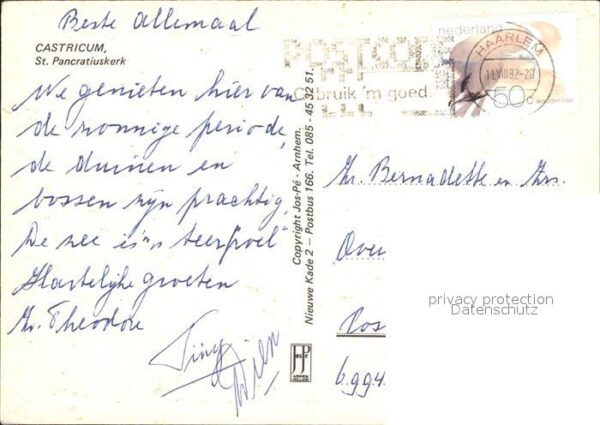 Beste Allemaal
CASTRICUM,
St. Pancratiuskerk
We genieten hier van
de zonnige periode,
de duinen en
bossen zijn prachtig,
De zee is
Hartelijke groeten
Zr. Theodore
Tiny
Wien
Copyright Jos-Pé - Arnhem.
Nieuwe Kade 2 – Postbus 166. Tel. 085 - 45 32 51.
POSTCODE
bruik 'm goed.
nederland
HAARLEM
50c
waddenzee
Zr. Bernadette en Zrs.
Over
Pos
privacy protection
Datenschutz